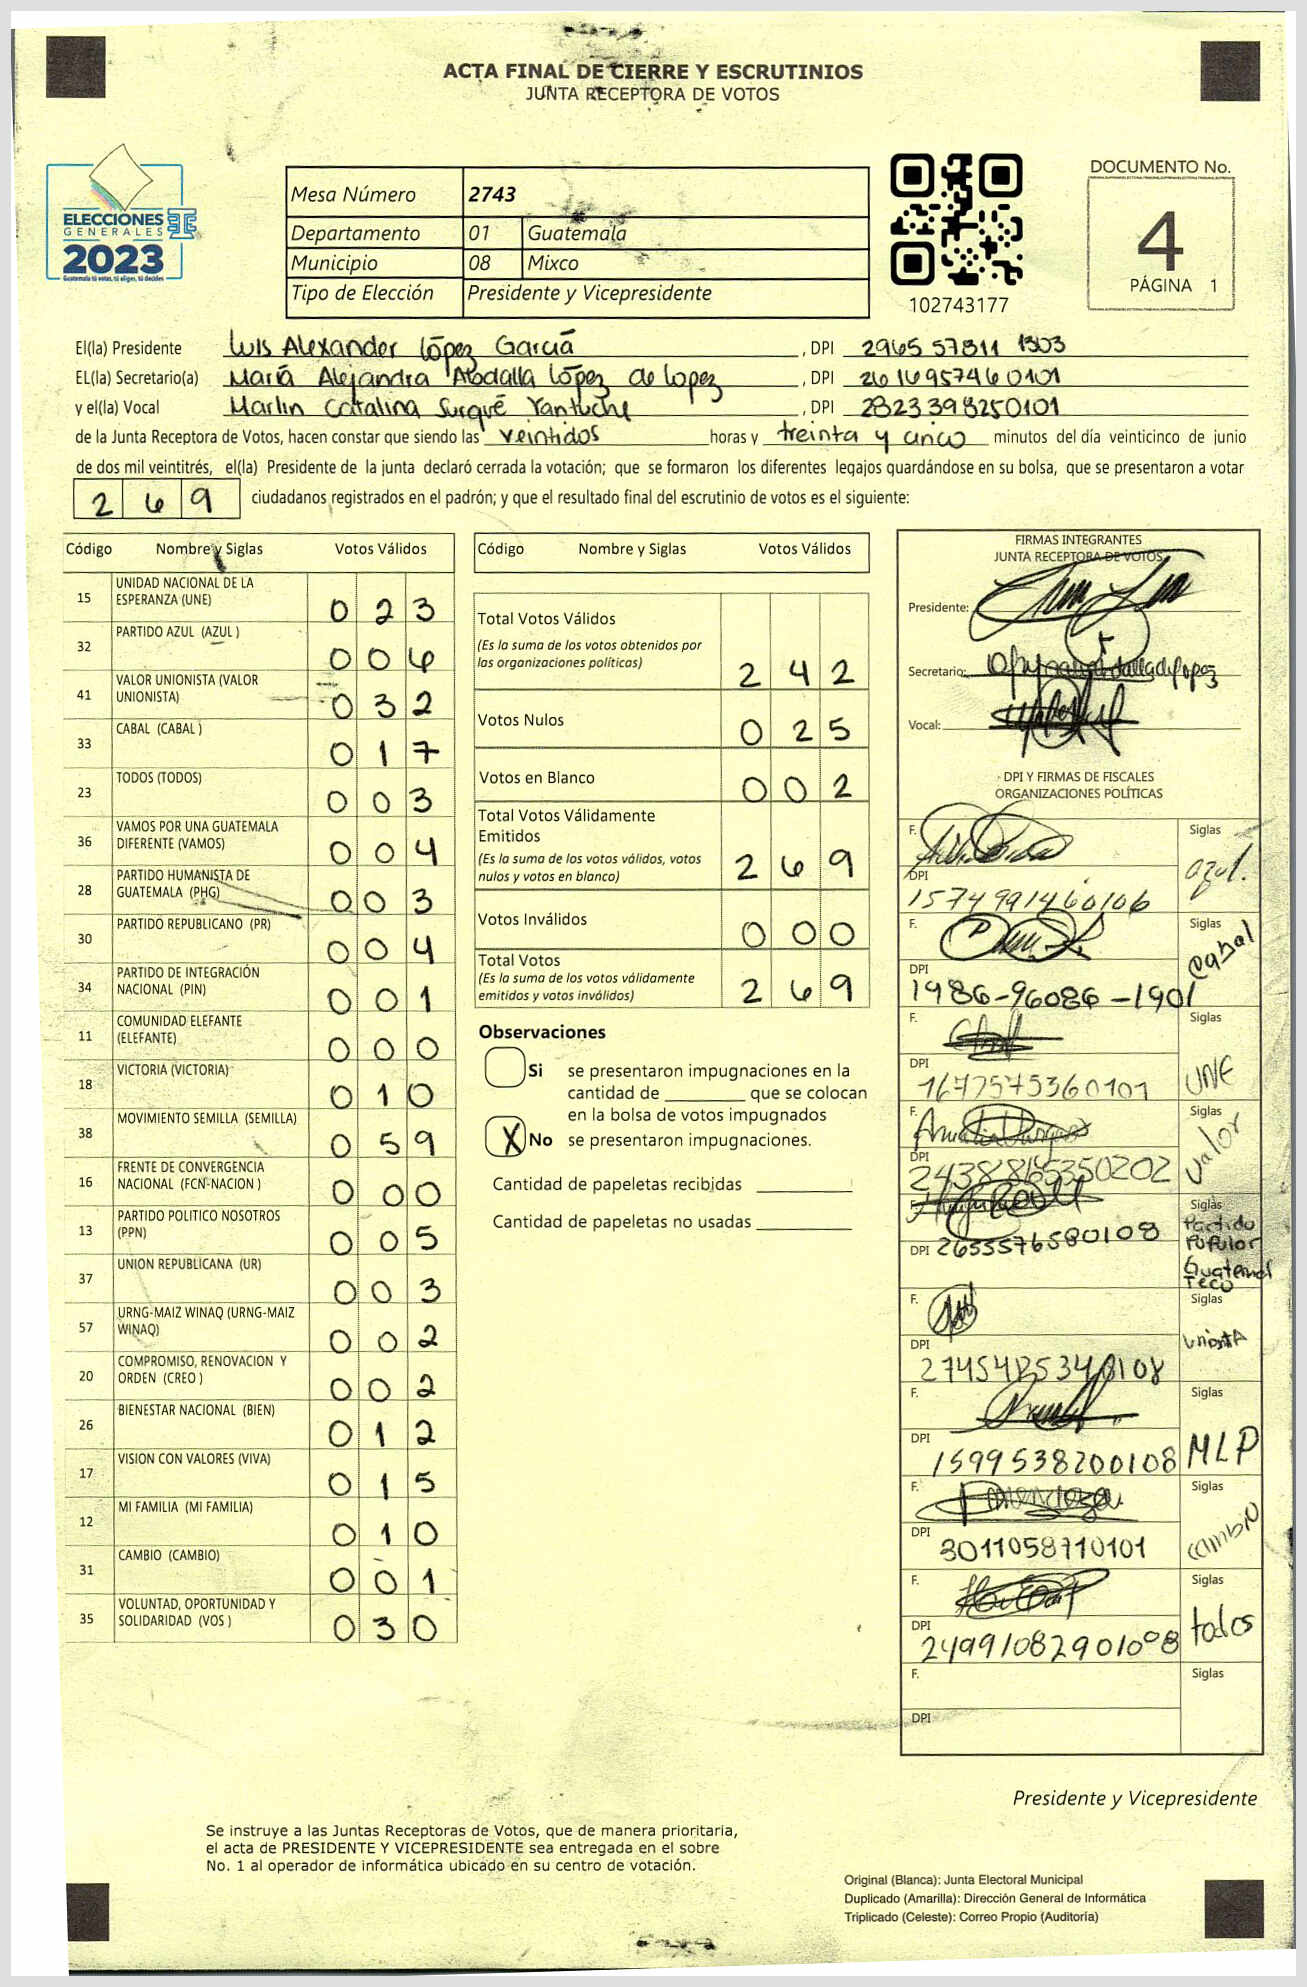 ACTA FINAL DE CIERRE Y ESCRUTINIOS
JUNTA RECEPTORA DE VOTOS
ELECCIONES
GENERALES
2023
Guatemala tú votas, tú eliges, tú decides
Mesa Número 2743
Departamento 01 Guatemala
Municipio 08 Mixco
Tipo de Elección Presidente y Vicepresidente
102743177
DOCUMENTO No.
4
PÁGINA 1
El(la) Presidente Luis Alexander López García , DPI 2965 57811 1303
EL(la) Secretario(a) María Alejandra Abdalla López de Lopez , DPI 2616957460101
y el(la) Vocal Marlin Catalina Surqué Yantuche , DPI 2823398250101
de la Junta Receptora de Votos, hacen constar que siendo las veintidos horas y treinta y cinco minutos del día veinticinco de junio
de dos mil veintitrés, el(la) Presidente de la junta declaró cerrada la votación; que se formaron los diferentes legajos guardándose en su bolsa, que se presentaron a votar
269 ciudadanos registrados en el padrón; y que el resultado final del escrutinio de votos es el siguiente:
Código Nombre y Siglas Votos Válidos
15 UNIDAD NACIONAL DE LA ESPERANZA (UNE) 023
32 PARTIDO AZUL (AZUL ) 006
41 VALOR UNIONISTA (VALOR UNIONISTA) 032
33 CABAL (CABAL ) 017
23 TODOS (TODOS) 003
36 VAMOS POR UNA GUATEMALA DIFERENTE (VAMOS) 004
28 PARTIDO HUMANISTA DE GUATEMALA (PHG) 003
30 PARTIDO REPUBLICANO (PR) 004
34 PARTIDO DE INTEGRACIÓN NACIONAL (PIN) 001
11 COMUNIDAD ELEFANTE (ELEFANTE) 000
18 VICTORIA (VICTORIA) 010
38 MOVIMIENTO SEMILLA (SEMILLA) 059
16 FRENTE DE CONVERGENCIA NACIONAL (FCN-NACION ) 000
13 PARTIDO POLITICO NOSOTROS (PPN) 005
37 UNION REPUBLICANA (UR) 003
57 URNG-MAIZ WINAQ (URNG-MAIZ WINAQ) 002
20 COMPROMISO, RENOVACION Y ORDEN (CREO ) 002
26 BIENESTAR NACIONAL (BIEN) 012
17 VISION CON VALORES (VIVA) 015
12 MI FAMILIA (MI FAMILIA) 010
31 CAMBIO (CAMBIO) 001
35 VOLUNTAD, OPORTUNIDAD Y SOLIDARIDAD (VOS ) 030
Código Nombre y Siglas Votos Válidos
Total Votos Válidos
(Es la suma de los votos obtenidos por
las organizaciones políticas) 242
Votos Nulos 025
Votos en Blanco 002
Total Votos Válidamente
Emitidos
(Es la suma de los votos válidos, votos
nulos y votos en blanco) 269
Votos Inválidos 000
Total Votos
(Es la suma de los votos válidamente
emitidos y votos inválidos) 269
Observaciones
Si se presentaron impugnaciones en la
cantidad de ________ que se colocan
en la bolsa de votos impugnados
X No se presentaron impugnaciones.
Cantidad de papeletas recibidas
Cantidad de papeletas no usadas
FIRMAS INTEGRANTES
JUNTA RECEPTORA DE VOTOS
Presidente:
Secretario:
Vocal:
DPI Y FIRMAS DE FISCALES
ORGANIZACIONES POLÍTICAS
F. Siglas azul.
DPI 1574991460106
F. Siglas cabal
DPI 1986-96086-1901
F. Siglas UNE
DPI 1647575360101
F. Siglas Valor
DPI 2438865350202
F. Siglas Partido Popular Guatemalteco
DPI 2655576580108
F. Siglas unionista
DPI
F. Siglas MLP
DPI 1599538200108
F. Siglas cambio
DPI 3011058710101
F. Siglas todos
DPI 24991082901008
F. Siglas
DPI
Presidente y Vicepresidente
Se instruye a las Juntas Receptoras de Votos, que de manera prioritaria,
el acta de PRESIDENTE Y VICEPRESIDENTE sea entregada en el sobre
No. 1 al operador de informática ubicado en su centro de votación.
Original (Blanca): Junta Electoral Municipal
Duplicado (Amarilla): Dirección General de Informática
Triplicado (Celeste): Correo Propio (Auditoría)